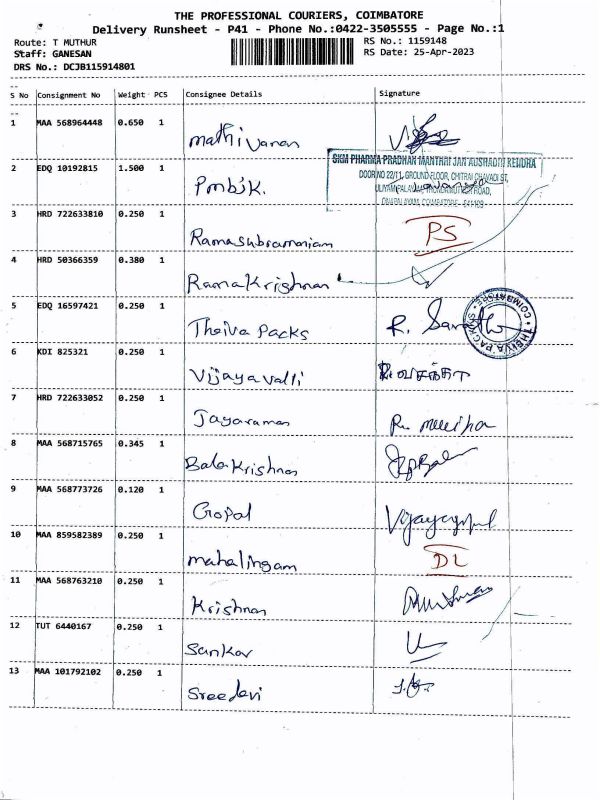 THE PROFESSIONAL COURIERS, COIMBATORE
Delivery Runsheet - P41 - Phone No.:0422-3505555 - Page No.:1
Route: T MUTHUR RS No.: 1159148
Staff: GANESAN RS Date: 25-Apr-2023
DRS No.: DCJB115914801
S No Consignment No Weight PCS Consignee Details Signature
1 MAA 568964448 0.650 1
Mathivanan
SKM PHARMA PRADHAN MANTHRI JAN AUSHADHI KENDRA
2 EDQ 10192815 1.500 1
DOOR NO 22/11, GROUND FLOOR, CHITRAI CHAVADI ST,
PMBJK.
3 HRD 722633810 0.250 1
Ramasubramniam PS
4 HRD 50366359 0.380 1
Ramakrishnan
5 EDQ 16597421 0.250 1
Theiva Packs
THEIVA PACKS COIMBATORE
6 KDI 825321 0.250 1
Vijayavalli R. வசந்தா
7 HRD 722633052 0.250 1
Jayaraman
8 MAA 568715765 0.345 1
Balakrishnan
9 MAA 568773726 0.120 1
Gopal Vijayagopal
10 MAA 859582389 0.250 1
Mahalingam DL
11 MAA 568763210 0.250 1
Krishnan
12 TUT 6440167 0.250 1
Sankar
13 MAA 101792102 0.250 1
Sreedevi